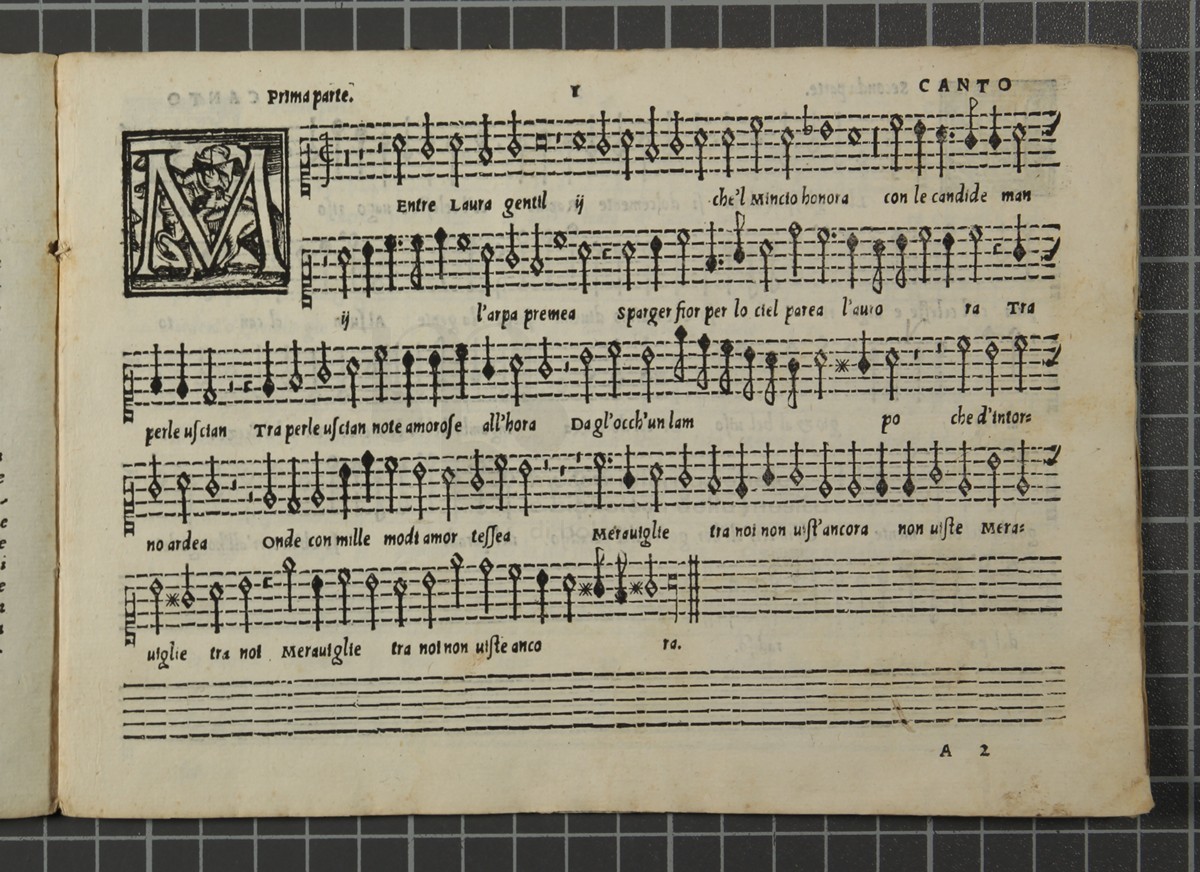 Prima parte. 1 CANTO
MEntre Laura gentil ij che'l Mincio honora con le candide man
ij l'arpa premea Sparger fior per lo ciel parea l'auro ra Tra
perle uscian Tra perle uscian note amorose all'hora Da gl'occh'un lam po che d'intor=
no ardea Onde con mille modi amor tessea Merauiglie tra noi non uist'ancora non uiste Mera=
uiglie tra noi Merauiglie tra noi non uiste anco ra.
A 2